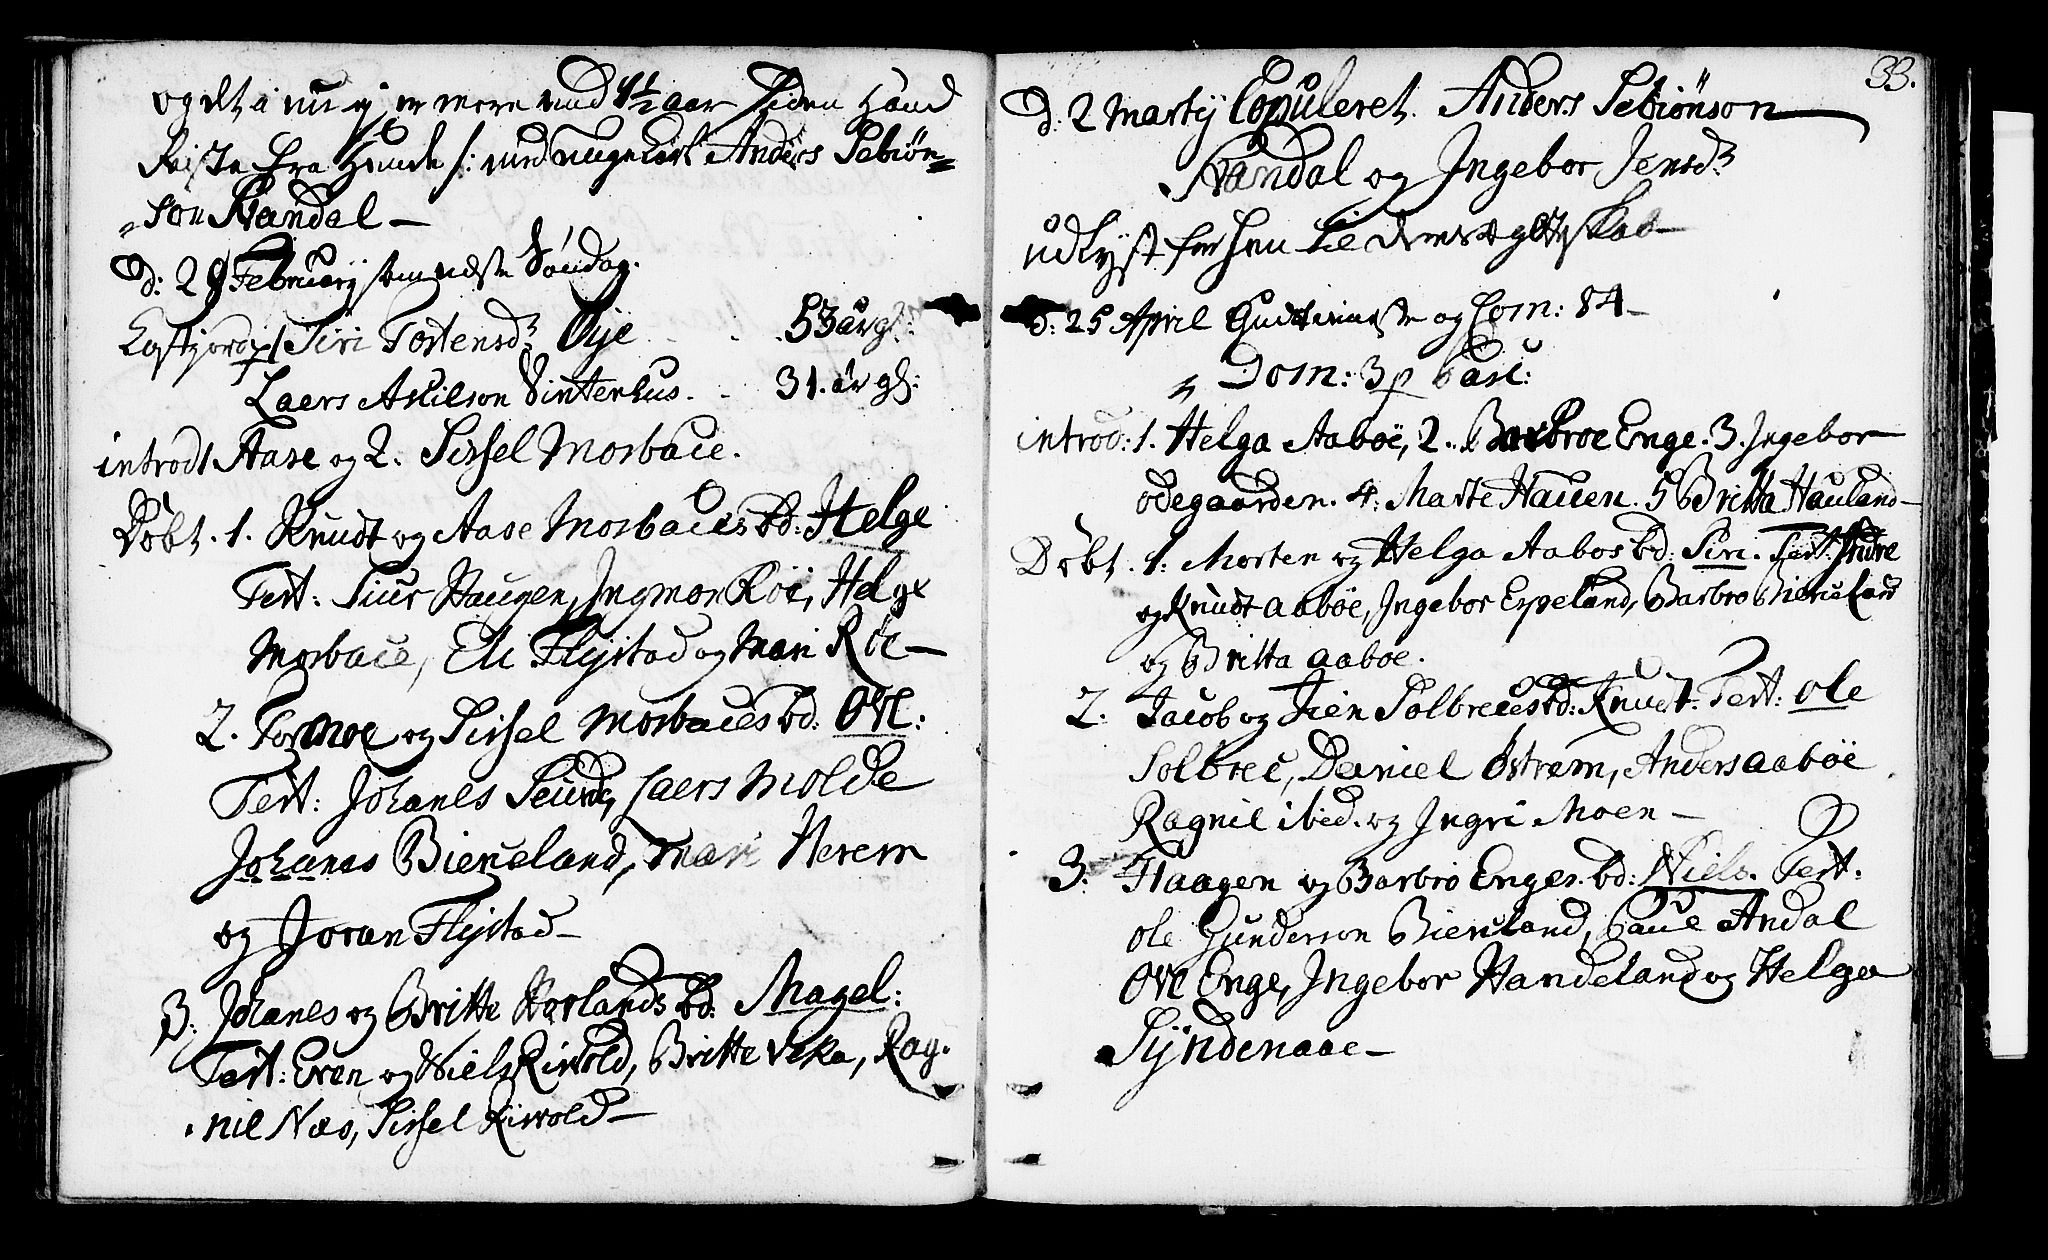 og det i nu ej er mere end 4½ aar siden hand
Reiste fra hende /: med unge Karl Anders Sebiøn=
=son Standal —
d: 28 February som var Søndag.
1 Siri Tostensdr Øye . . 53 år gl:
Laers Askilson Vinterhus . . 31. år gl:
introd 1 Aase og 2. Sissel Mosbace.
Døbt. 1. Knudt og Aase Mosbaces bd: Helge
Test: Siur Haugen, Ingmon Røe, Helge
Mosbace, Eli Flystad og Mari Røe —
2. Tormoe og Sissel Mosbaces bd: Ove:
Test: Johanes Laers Molde
Johanes Biercland, Mari Herem
og Joran Flystad —
3. Johanes og Britte Horlands bd: Magel:
Test: Even og Niels Rivold, Britte Vika, Rag-
nil Næs, Sissel Rivold —
33.
d: 2 Martij Copuleret. Anders Sebiønson
Standal og Ingebor Jensdr
udlyst for hen til deres ægteskab —
d: 25 April Gudstieneste og Com: 84 —
Dom: 3 p Pasc:
introd: 1. Helga Aabøe, 2. Barbroe Enge. 3. Ingebor
Ødegaarden. 4. Marte Hauen. 5 Britta Hauland —
Døbt. 1: Morten og Helga Aabos bd: Siri. Test: Andre
og Knudt Aabøe, Ingebor Espeland, Barbro Biercland
og Britta Aabøe.
2. Jacob og Jren Solbreces bd: Knudt. Test: Ole
Solbrec, Daniel Østrem, Anders Aabøe
Ragnil ibid. og Ingri Moen —
3: Haagen og Barbro Enges. bd: Niels. Test:
Ole Gunderson Biercland, Paul Andal
Ove Enge, Ingebor Handeland og Helga
Syndenaae —